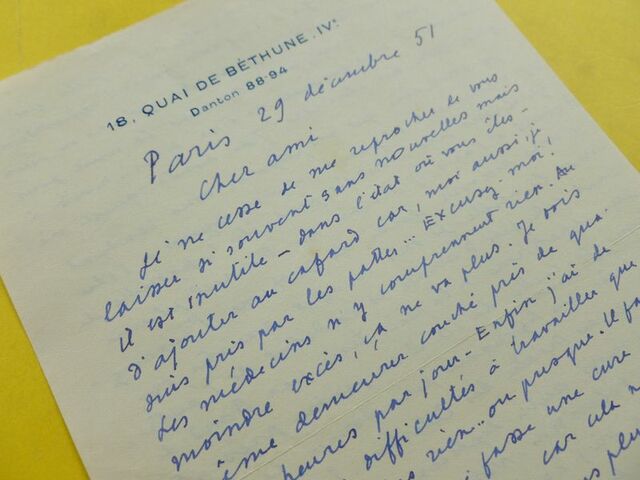 18, QUAI DE BÉTHUNE. IVᵉ
Danton 88-94
Paris 29 décembre 51
Cher ami
Je ne cesse de me reprocher de vous
laisser si souvent sans nouvelles mais
il est inutile - dans l'état où vous êtes -
d'ajouter au cafard car, moi aussi, je
suis pris par les pattes... Excusez-moi!
Les médecins n'y comprennent rien. Au
moindre excès, ça ne va plus. Je dois
même demeurer couché près de qua-
heures par jour - Enfin j'ai de
difficultés à travailler que
rien.. ou presque. Il fa
fasse une cure
car cela n
plus